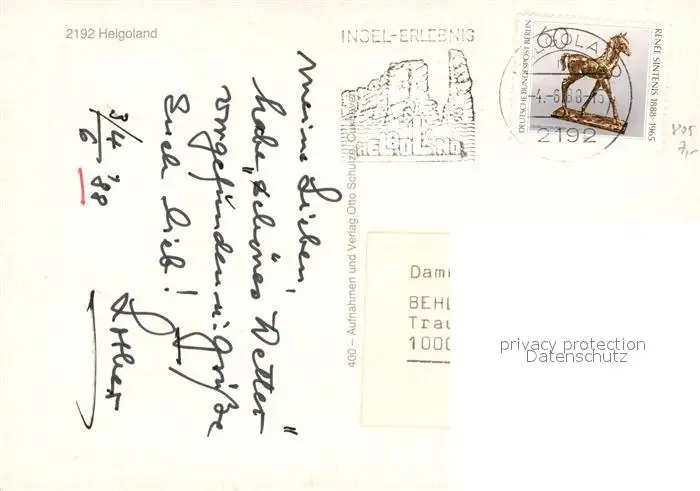 2192 Helgoland
INSEL-ERLEBNIS
HELGOLAND
DEUTSCHE BUNDESPOST BERLIN
60
RENÉE SINTENIS 1888-1965
HELGOLAND
-4.-6.88-15
2192
805
7,-
Meine Lieben,
habe "schönes Wetter"
vorgefunden u. grüße
Euch lieb!
3/4
6 '88
Lothar
400 – Aufnahmen und Verlag Otto Schulze, Cuxhaven
Dam
BEHL
Trau
1000
privacy protection
Datenschutz